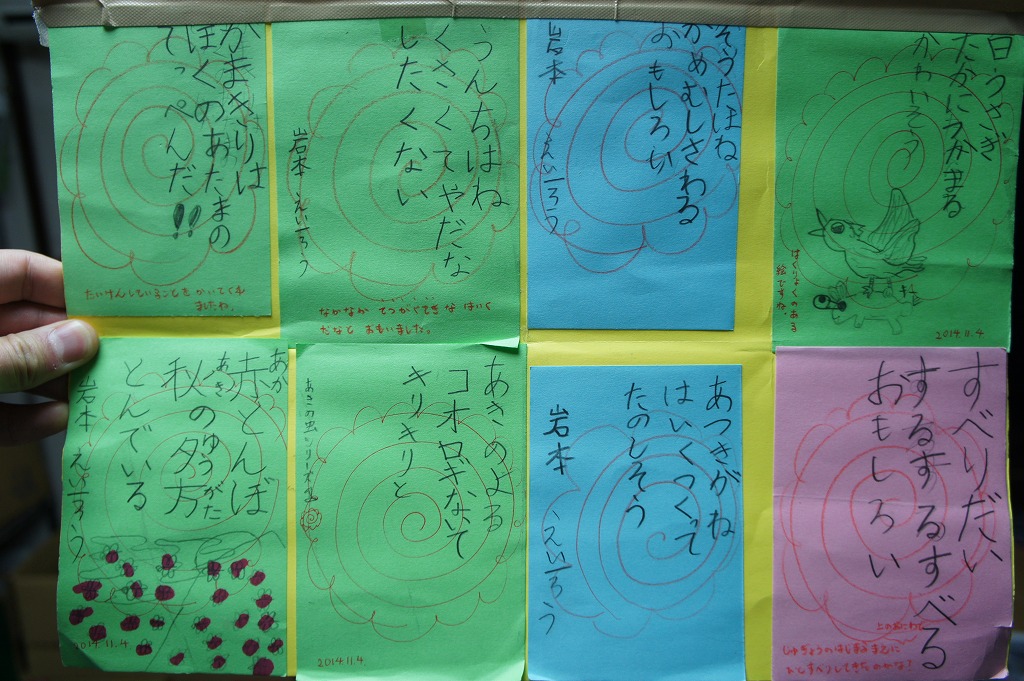 白うさぎ
たかにつかまる
かわいそう
はくりょくのある
絵ですね。
2014.11.4
そうたはね
かめむしさわる
おもしろい
岩本 えい一ろう
うんちはね
くさくてやだな
したくない
岩本 えい一ろう
なかなか てつがくてきな はいく
だなと おもいました。
かまきりは
ぼくのあたまの
てっぺんだ!!
たいけんしていることを かいてくれ
ましたね。
すべりだい
するするすべる
おもしろい
じゅぎょうのはじまるまえに
ひとすべりしてきたのかな?
あつきがね
はいくつくって
たのしそう
岩本 えい一ろう
あきのよる
コオロギないて
キリキリと
あきの虫シリーズ
2014.11.4
あか
赤とんぼ
あき ゆうがた
秋の夕方
とんでいる
岩本 えい一ろう
2014.11.4